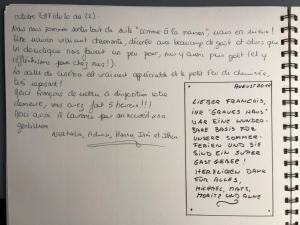 octobre 2017 (du 20 au 22).
Nous nous sommes sentis tout de suite "comme à la maison", mais en mieux!
Une maison vraiment charmante, décorée avec beaucoup de goût et alors que
la domotique nous faisait un peu peur, nous y avons pris goût (et y
réfléchissons pour chez nous!).
La salle de cinéma est vraiment appréciable et le petit feu de cheminée,
très reposant!
Merci François de mettre à disposition votre
demeure, vous avez fait 5 heureux!!!
Merci aussi à Laurence pour son accueil et sa
gentillesse.
Nathalie, et
AUGUST 2018
LIEBER FRANCOIS,
IHR "GRAVES HAUS"
WAR EINE WUNDER-
BARE BASIS FÜR
UNSERE SOMMER-
FERIEN UND SIE
SIND EIN SUPER
GASTGEBER!
HERZLICHEN DANK
FÜR ALLES,
MICHAEL, MATS,
MORITZ UND